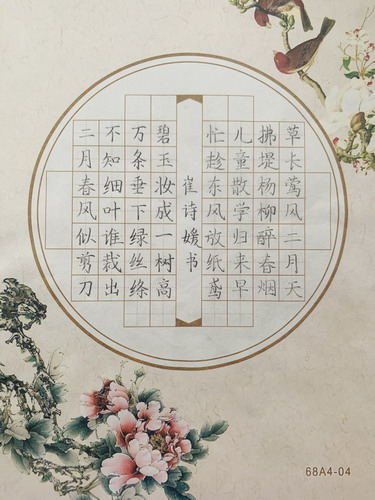 草长莺风二月天
拂堤杨柳醉春烟
儿童散学归来早
忙趁东风放纸鸢
崔诗媛书
碧玉妆成一树高
万条垂下绿丝绦
不知细叶谁裁出
二月春风似剪刀
68A4-04